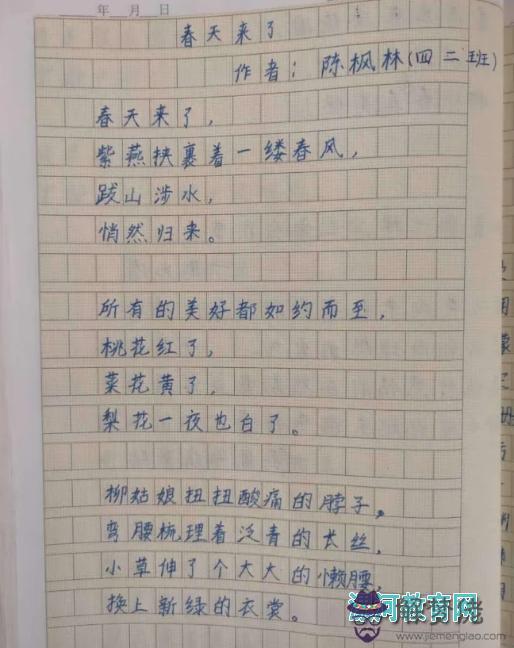 年 月 日
春天来了
作者：陈枫林(四二班)
春天来了，
紫燕挟裹着一缕春风，
跋山涉水，
悄然归来。
所有的美好都如约而至，
桃花红了，
菜花黄了，
梨花一夜也白了。
柳姑娘扭扭酸痛的脖子，
弯腰梳理着泛青的长丝，
小草伸了个大大的懒腰，
换上新绿的衣裳。
教育网
解梦佬
www.jiemenglao.com